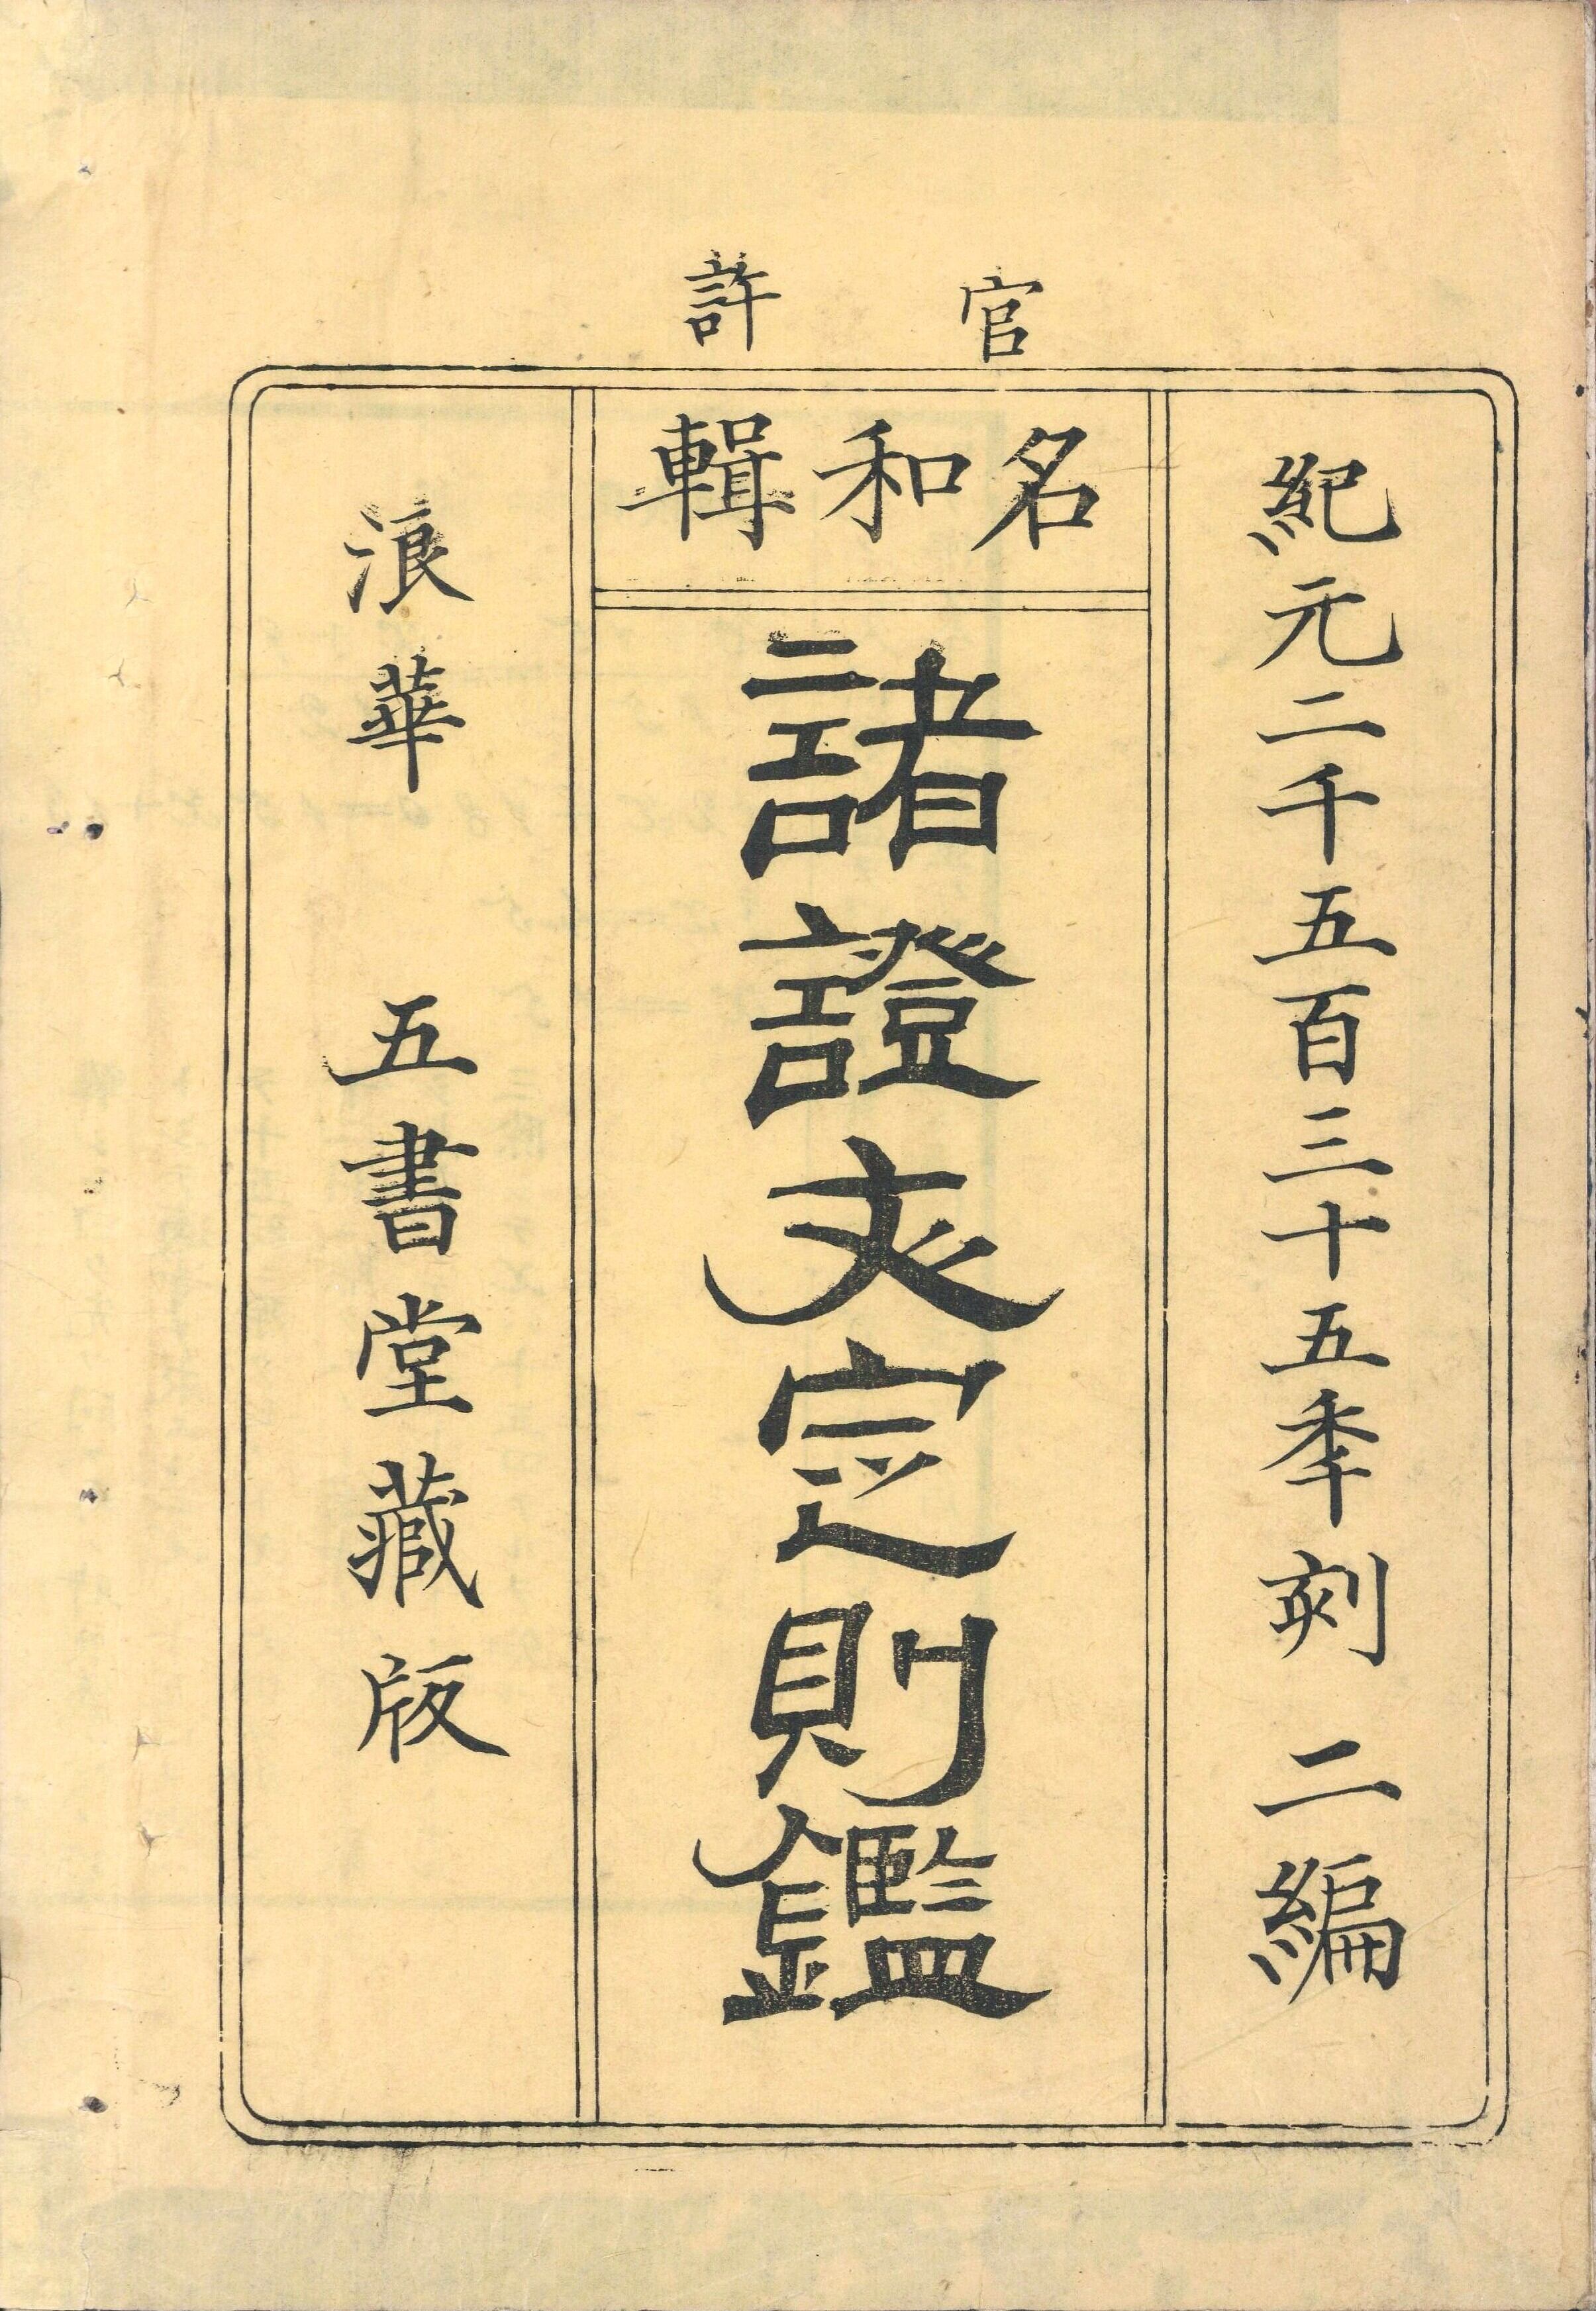 官許
紀元二千五百三十五季刻 二編
名和輯
諸證文定則鑑
浪華 五書堂藏版